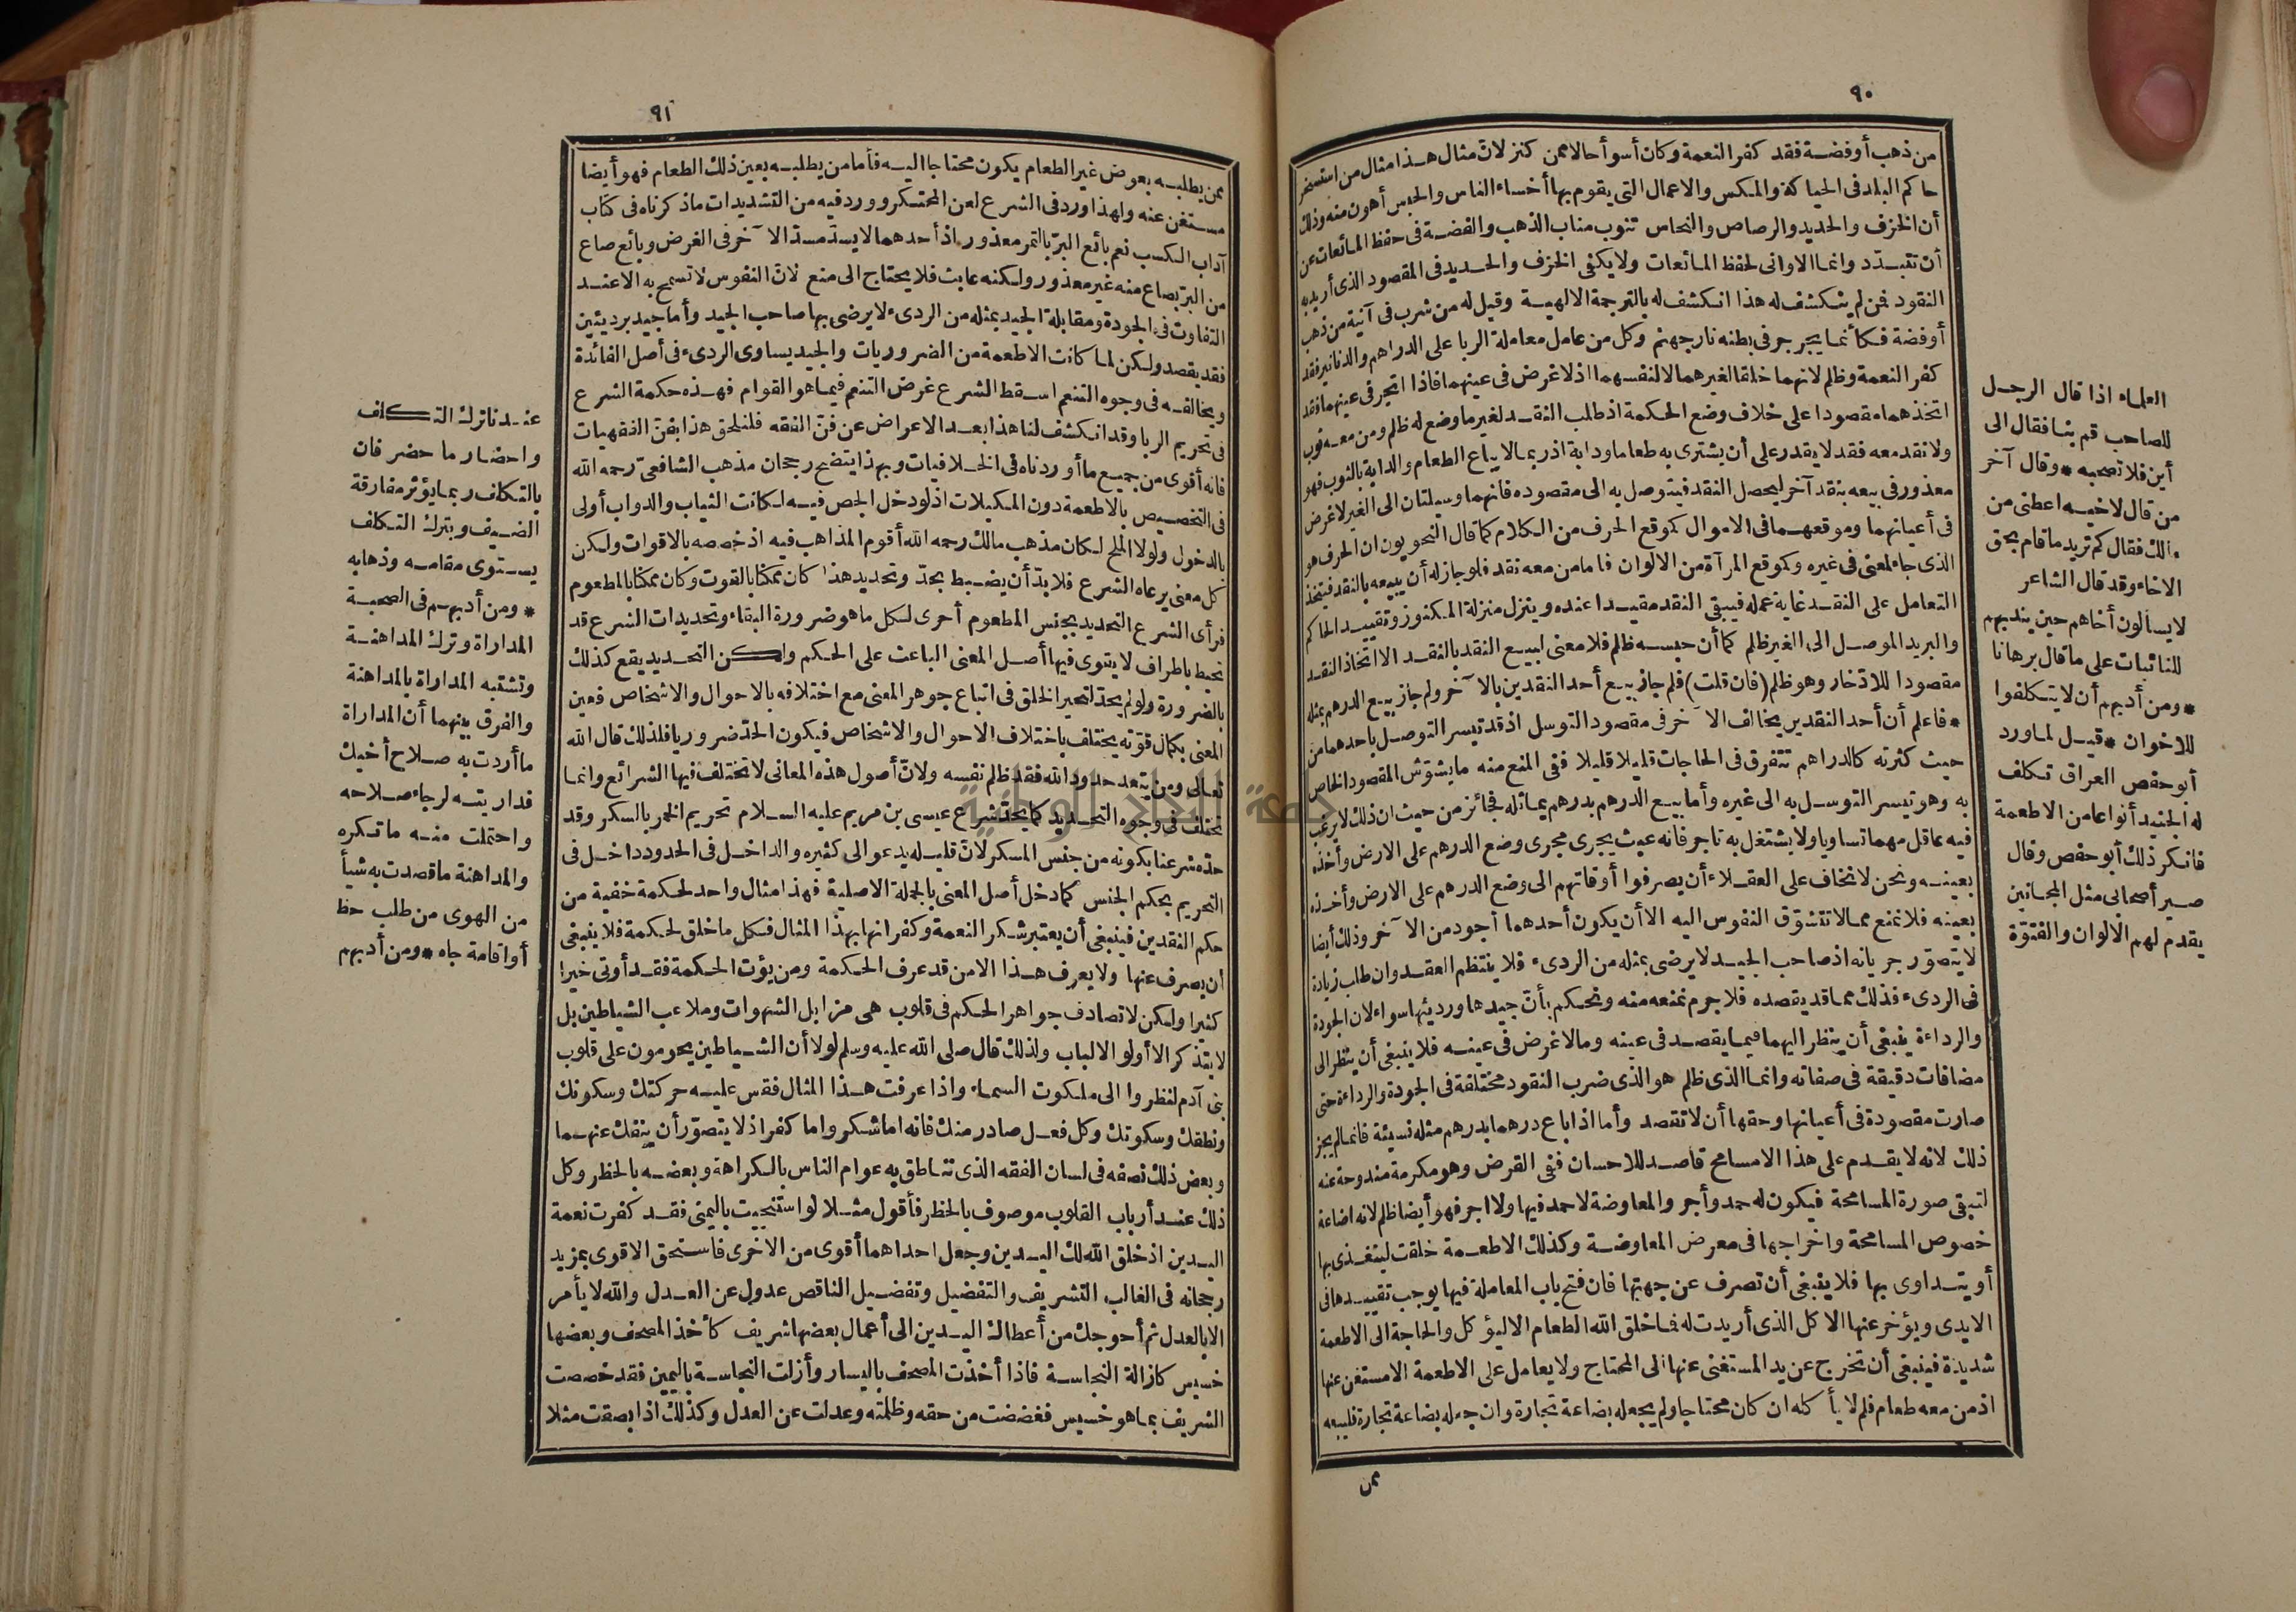 ٩٠
من ذهب أو فضة فقد كفر النعمة وكان أسوأ حالا ممن كنز لانّ مثال هذا مثال من استسخر
حاكم البلد فى الحياكة والمكس والاعمال التى يقوم بها أخساء الناس والحبس أهون منه وذلك
أن الخزف والحديد والرصاص والنحاس تنوب مناب الذهب والفضة فى حفظ المائعات عن
أن تتبدّد وانما الاوانى لحفظ المائعات ولا يكفى الخزف والحديد فى المقصود الذى أريد به
النقود فمن لم ينكشف له هذا انكشف له بالترجمة الالهية وقيل له من شرب فى آنية من ذهب
أو فضة فكأنما يجرجر فى بطنه نار جهنم وكل من عامل معاملة الربا على الدراهم والدنانير فقد
كفر النعمة وظلم لانهما خلقا لغيرهما لا لنفسهما اذ لا غرض فى عينهما فاذا اتجر فى عينهما فقد
اتخذهما مقصودا على خلاف وضع الحكمة اذ طلب النقد لغير ما وضع له ظلم ومن معه ثوب
ولا نقد معه فقد لا يقدر على أن يشترى به طعاما ودابة اذ ربما لا يباع الطعام والدابة بالثوب فهو
معذور فى بيعه بنقد آخر ليحصل النقد فيتوصل به الى مقصوده فانهما وسيلتان الى الغير لا غرض
فى أعيانهما وموقعهما فى الاموال كموقع الحرف من الكلام كما قال النحويون ان الحرف هو
الذى جاء لمعنى فى غيره وكموقع المرآة من الالوان فاما من معه نقد فلو جاز له أن يبيعه بالنقد فيتخذ
التعامل على النقد غاية عمله فيبقى النقد مقيدا عنده وينزل منزلة المكنوز وتقييد الحاكم
والبريد الموصل الى الغير ظلم كما أن حبسه ظلم فلا معنى لبيع النقد بالنقد الا اتخاذ النقد
مقصودا للادّخار وهو ظلم (فان قلت) فلم جاز بيع أحد النقدين بالآخر ولم جاز بيع الدرهم بمثله
* فاعلم أن أحد النقدين يخالف الآخر فى مقصود التوسل اذ قد تيسر التوصل باحدهما من
حيث كثرته كالدراهم تتفرق فى الحاجات قليلا قليلا ففى المنع منه ما يشوّش المقصود الخاص
به وهو تيسر التوسل به الى غيره وأما بيع الدرهم بدرهم يماثله فجائز من حيث ان ذلك لا يرغب
فيه عاقل مهما تساويا ولا يشتغل به تاجر فانه عبث يجرى مجرى وضع الدرهم على الارض وأخذه
بعينه ونحن لا نخاف على العقلاء أن يصرفوا أوقاتهم الى وضع الدرهم على الارض وأخذه
بعينه فلا نمنع مما لا تتشوّق النفوس اليه الا أن يكون أحدهما أجود من الآخر وذلك أيضا
لا يتصوّر جريانه اذ صاحب الجيد لا يرضى بمثله من الردىء فلا ينتظم العقد وان طلب زيادة
فى الردىء فذلك مما قد يقصده فلا جرم نمنعه منه ونحكم بأنّ جيدها ورديئها سواء لان الجودة
والرداءة ينبغى أن ينظر اليهما فيما يقصد فى عينه وما لا غرض فى عينه فلا ينبغى أن ينظر الى
مضافات دقيقة فى صفاته وانما الذى ظلم هو الذى ضرب النقود مختلفة فى الجودة والرداءة حتى
صارت مقصودة فى أعيانها وحقها أن لا تقصد وأما اذا باع درهما بدرهم مثله نسيئة فانما لم يجز
ذلك لانه لا يقدم على هذا الا مسامح قاصد للاحسان ففى القرض وهو مكرمة مندوحة عنه
لتبقى صورة المسامحة فيكون له حمد وأجر والمعاوضة لا حمد فيها ولا اجر فهو أيضا ظلم لانه اضاعة
خصوص المسامحة واخراجها فى معرض المعاوضة وكذلك الاطعمة خلقت ليتغذى بها
أو يتداوى بها فلا ينبغى أن تصرف عن جهتها فان فتح باب المعاملة فيها يوجب تقييدها فى
الايدى ويؤخر عنها الاكل الذى أريدت له فما خلق الله الطعام الا ليؤكل والحاجة الى الاطعمة
شديدة فينبغى أن تخرج عن يد المستغنى عنها الى المحتاج ولا يعامل على الاطعمة الا مستغن عنها
اذ من معه طعام فلم لا يأكله ان كان محتاجا ولم يجعله بضاعة تجارة وان جعله بضاعة تجارة فليبعه
ممن
العلماء اذا قال الرجل
للصاحب قم بنا فقال الى
أين فلا تصحبه * وقال آخر
من قال لاخيه اعطنى من
مالك فقال كم تريد ما قام بحق
الاخاء وقد قال الشاعر
لا يسألون أخاهم حين يندبهم
للنائبات على ما قال برهانا
* ومن أدبهم أن لا يتكلفوا
للاخوان * قيل لما ورد
أبو حفص العراق تكلف
له الجنيد أنواعا من الاطعمة
فانكر ذلك أبو حفص وقال
صير أصحابى مثل المخانيث
يقدم لهم الالوان والفتوّة
٩١
ممن يطلبه بعوض غير الطعام يكون محتاجا اليه فأما من يطلبه بعين ذلك الطعام فهو أيضا
مستغن عنه ولهذا ورد فى الشرع لعن المحتكر وورد فيه من التشديدات ما ذكرناه فى كتاب
آداب الكسب نعم بائع البرّ بالتمر معذور اذ أحدهما لا يسدّ مسدّ الآخر فى الغرض وبائع صاع
من البرّ بصاع منه غير معذور ولكنه عابث فلا يحتاج الى منع لانّ النفوس لا تسمح به الا عند
التفاوت فى الجودة ومقابلة الجيد بمثله من الردىء لا يرضى بها صاحب الجيد وأما جيد برديئين
فقد يقصد ولكن لما كانت الاطعمة من الضروريات والجيد يساوى الردىء فى أصل الفائدة
ويخالفه فى وجوه التنعم اسقط الشرع غرض التنعم فيما هو القوام فهذه حكمة الشرع
فى تحريم الربا وقد انكشف لنا هذا بعد الاعراض عن فنّ الفقه فلنلحق هذا بفنّ الفقهيات
فانه أقوى من جميع ما أوردناه فى الخلافيات وبهذا يتضح رجحان مذهب الشافعىّ رحمه الله
فى التخصيص بالاطعمة دون المكيلات اذ لو دخل الجص فيه لكانت الثياب والدواب أولى
بالدخول ولولا الملح لكان مذهب مالك رحمه الله أقوم المذاهب فيه اذ خصصه بالاقوات ولكن
كل معنى يرعاه الشرع فلا بدّ أن يضبط بحدّ وتحديد هذا كان ممكنا بالقوت وكان ممكنا بالمطعوم
فرأى الشرع التحديد بجنس المطعوم أحرى لكل ما هو ضرورة البقاء وتحديدات الشرع قد
تحيط باطراف لا يقوى فيها أصل المعنى الباعث على الحكم ولكن التحديد يقع كذلك
بالضرورة ولو لم يحدّ لتحير الخلق فى اتباع جوهر المعنى مع اختلافه بالاحوال والاشخاص فعين
المعنى بكمال قوّته يختلف باختلاف الاحوال والاشخاص فيكون الحدّ ضروريا فلذلك قال الله
تعالى ومن يتعد حدود الله فقد ظلم نفسه ولانّ أصول هذه المعانى لا تختلف فيها الشرائع وانما
تختلف فى وجوه التحديد كما يحدّ شرع عيسى بن مريم عليه السلام تحريم الخمر بالسكر وقد
حدّه شرعنا بكونه من جنس المسكر لانّ قليله يدعو الى كثيره والداخل فى الحدود داخل فى
التحريم بحكم الجنس كما دخل أصل المعنى بالجملة الاصلية فهذا مثال واحد لحكمة خفية من
حكم النقدين فينبغى أن يعتبر شكر النعمة وكفرانها بهذا المثال فكل ما خلق لحكمة فلا ينبغى
أن يصرف عنها ولا يعرف هذا الا من قد عرف الحكمة ومن يؤت الحكمة فقد أوتى خيرا
كثيرا ولكن لا تصادف جواهر الحكم فى قلوب هى مزابل الشهوات وملاعب الشياطين بل
لا يتذكر الا أولو الالباب ولذلك قال صلى الله عليه وسلم لولا أن الشياطين يحومون على قلوب
بنى آدم لنظروا الى ملكوت السماء واذا عرفت هذا المثال فقس عليه حركتك وسكونك
ونطقك وسكوتك وكل فعل صادر منك فانه اما شكر واما كفر اذ لا يتصوّر أن ينفك عنهما
وبعض ذلك نصفه فى لسان الفقه الذى تناطق به عوام الناس بالكراهة وبعضه بالحظر وكل
ذلك عند أرباب القلوب موصوف بالحظر فأقول مثلا لو استنجيت باليمنى فقد كفرت نعمة
اليدين اذ خلق الله لك اليدين وجعل احداهما أقوى من الاخرى فاستحق الاقوى بمزيد
رجحانه فى الغالب التشريف والتفضيل وتفضيل الناقص عدول عن العدل والله لا يأمر
الا بالعدل ثم أحوجك من أعطاك اليدين الى أعمال بعضها شريف كأخذ المصحف وبعضها
خسيس كازالة النجاسة فاذا أخذت المصحف باليسار وأزلت النجاسة باليمين فقد خصصت
الشريف بما هو خسيس فغضضت من حقه وظلمته وعدلت عن العدل وكذلك اذا بصقت مثلا
عندنا ترك التكلف
واحضار ما حضر فان
بالتكلف ربما يؤثر مفارقة
الضيف وبترك التكلف
يستوى مقامه وذهابه
* ومن أدبهم فى الصحبة
المداراة وترك المداهنة
وتشتبه المداراة بالمداهنة
والفرق بينهما أن المداراة
ما أردت به صلاح أخيك
فداريته لرجاء صلاحه
واحتملت منه ما تكره
والمداهنة ما قصدت به شيأ
من الهوى من طلب حظ
أو اقامة جاه * ومن أدبهم